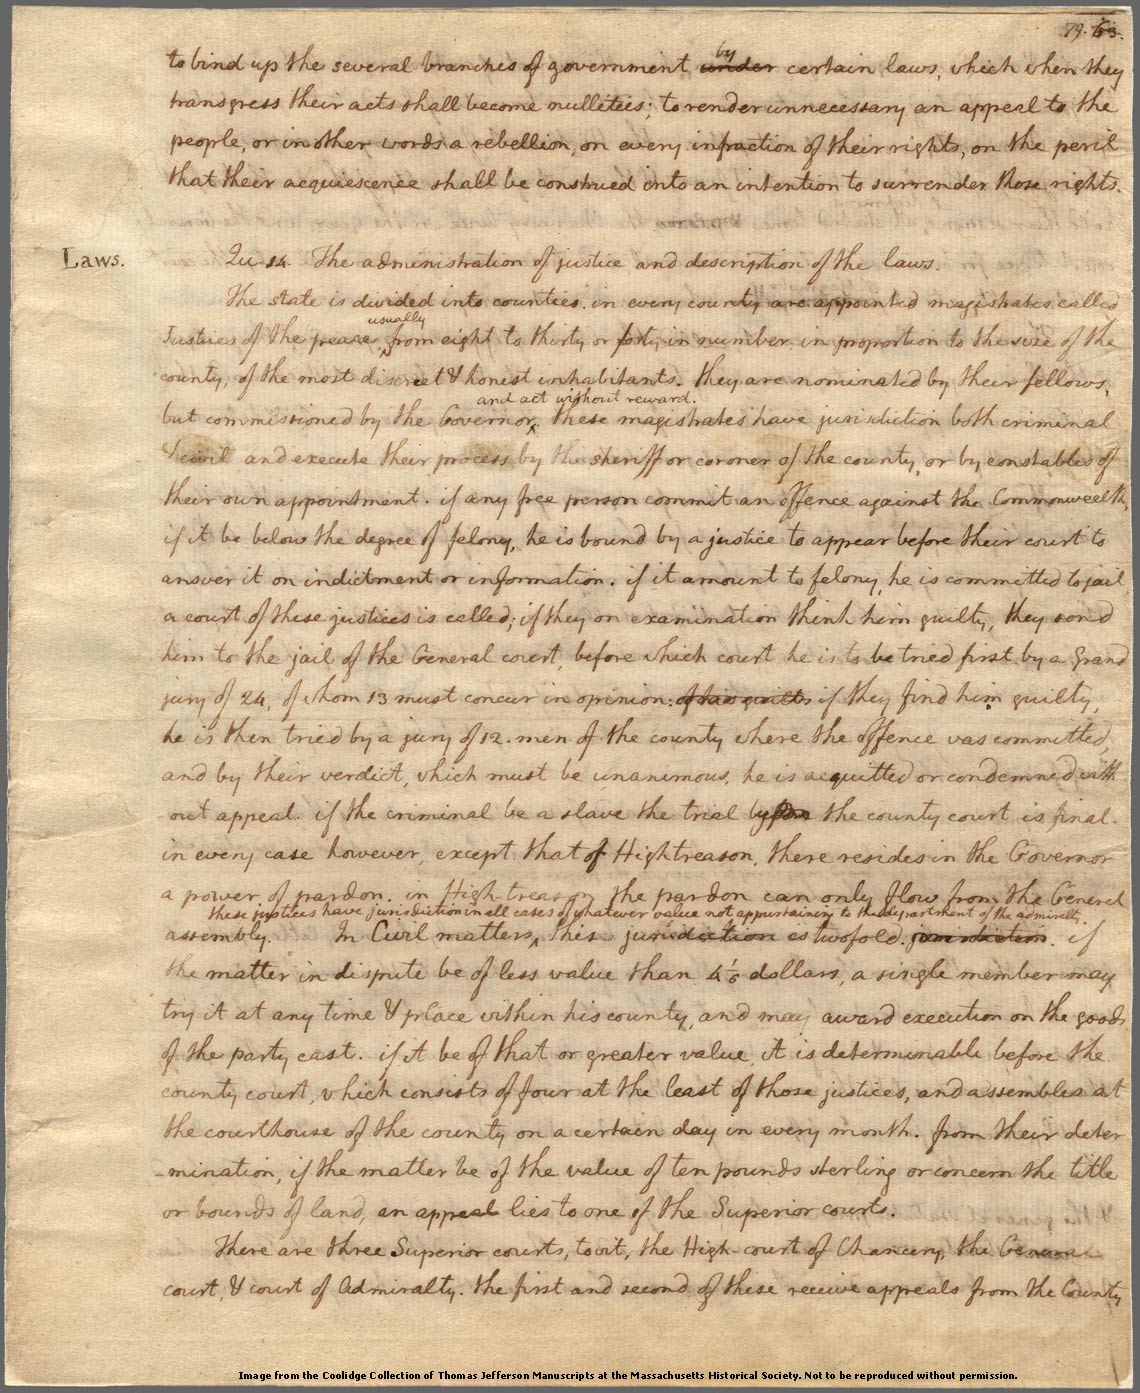 79. 63.
by
to bind up the several branches of government under certain laws, which when they
transgress their acts shall become nullities; to render unnecessary an appeal to the
people, or in other words a rebellion, on every infraction of their rights, on the peril
that their acquiescence shall be construed into an intention to surrender those rights.
Laws. Qu. 14. The administration of justice and description of the laws.
The state is divided into counties. in every county are appointed magistrates called
usually
Justices of the peace, from eight to thirty or forty in number, in proportion to the size of the
county, of the most discreet & honest inhabitants. they are nominated by their fellows,
and act without reward.
but commissioned by the Governor. these magistrates have jurisdiction both criminal
& civil and execute their process by the sheriff or coroner of the county, or by constables of
their own appointment. if any free person commit an offence against the Commonwealth,
if it be below the degree of felony, he is bound by a justice to appear before their court to
answer it on indictment or information. if it amount to felony, he is committed to jail,
a court of these justices is called; if they on examination think him guilty, they send
him to the jail of the General court, before which court he is to be tried first by a Grand
jury of 24, of whom 13 must concur in opinion: of his guilt if they find him guilty,
he is then tried by a jury of 12. men of the county where the offence was committed,
and by their verdict, which must be unanimous, he is acquitted or condemned with
-out appeal. if the criminal be a slave the trial by the county court is final.
in every case however, except that of High treason, there resides in the Governor
a power of pardon. in High-treason, the pardon can only flow from the General
these justices have jurisdiction in all cases of whatever value not appertaining to the department of the admiralty.
assembly. In Civil matters, this jurisdiction is twofold. jurisdiction. if
the matter in dispute be of less value than 4 1/6 dollars, a single member may
try it at any time & place within his county, and may award execution on the goods
of the party cast. if it be of that or greater value, it is determinable before the
county court, which consists of four at the least of those justices, and assembles at
the courthouse of the county on a certain day in every month. from their deter
-mination, if the matter be of the value of ten pounds sterling or concern the title
or bounds of land, an appeal lies to one of the Superior courts.
There are three Superior courts, towit, the High-court of Chancery, the General
court, & court of Admiralty. the first and second of these receive appeals from the County
Image from the Coolidge Collection of Thomas Jefferson Manuscripts at the Massachusetts Historical Society. Not to be reproduced without permission.